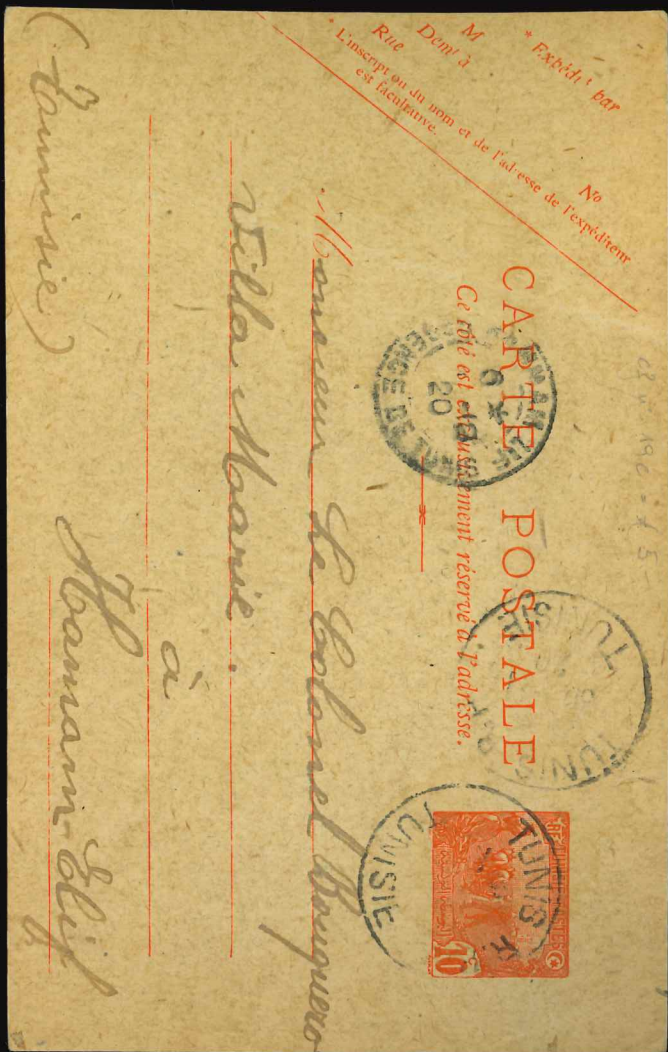 * Expédié par
M
Demt à
Rue
No
* L'inscription du nom et de l'adresse de l'expéditeur
est facultative.
CARTE POSTALE
Ce côté est exclusivement réservé à l'adresse.
TUNIS
TUNISIE
TUNIS
TUNISIE
20
10
Monsieur Le Colonel
Villa Marie.
à
Hamam-Lif
(Tunisie)